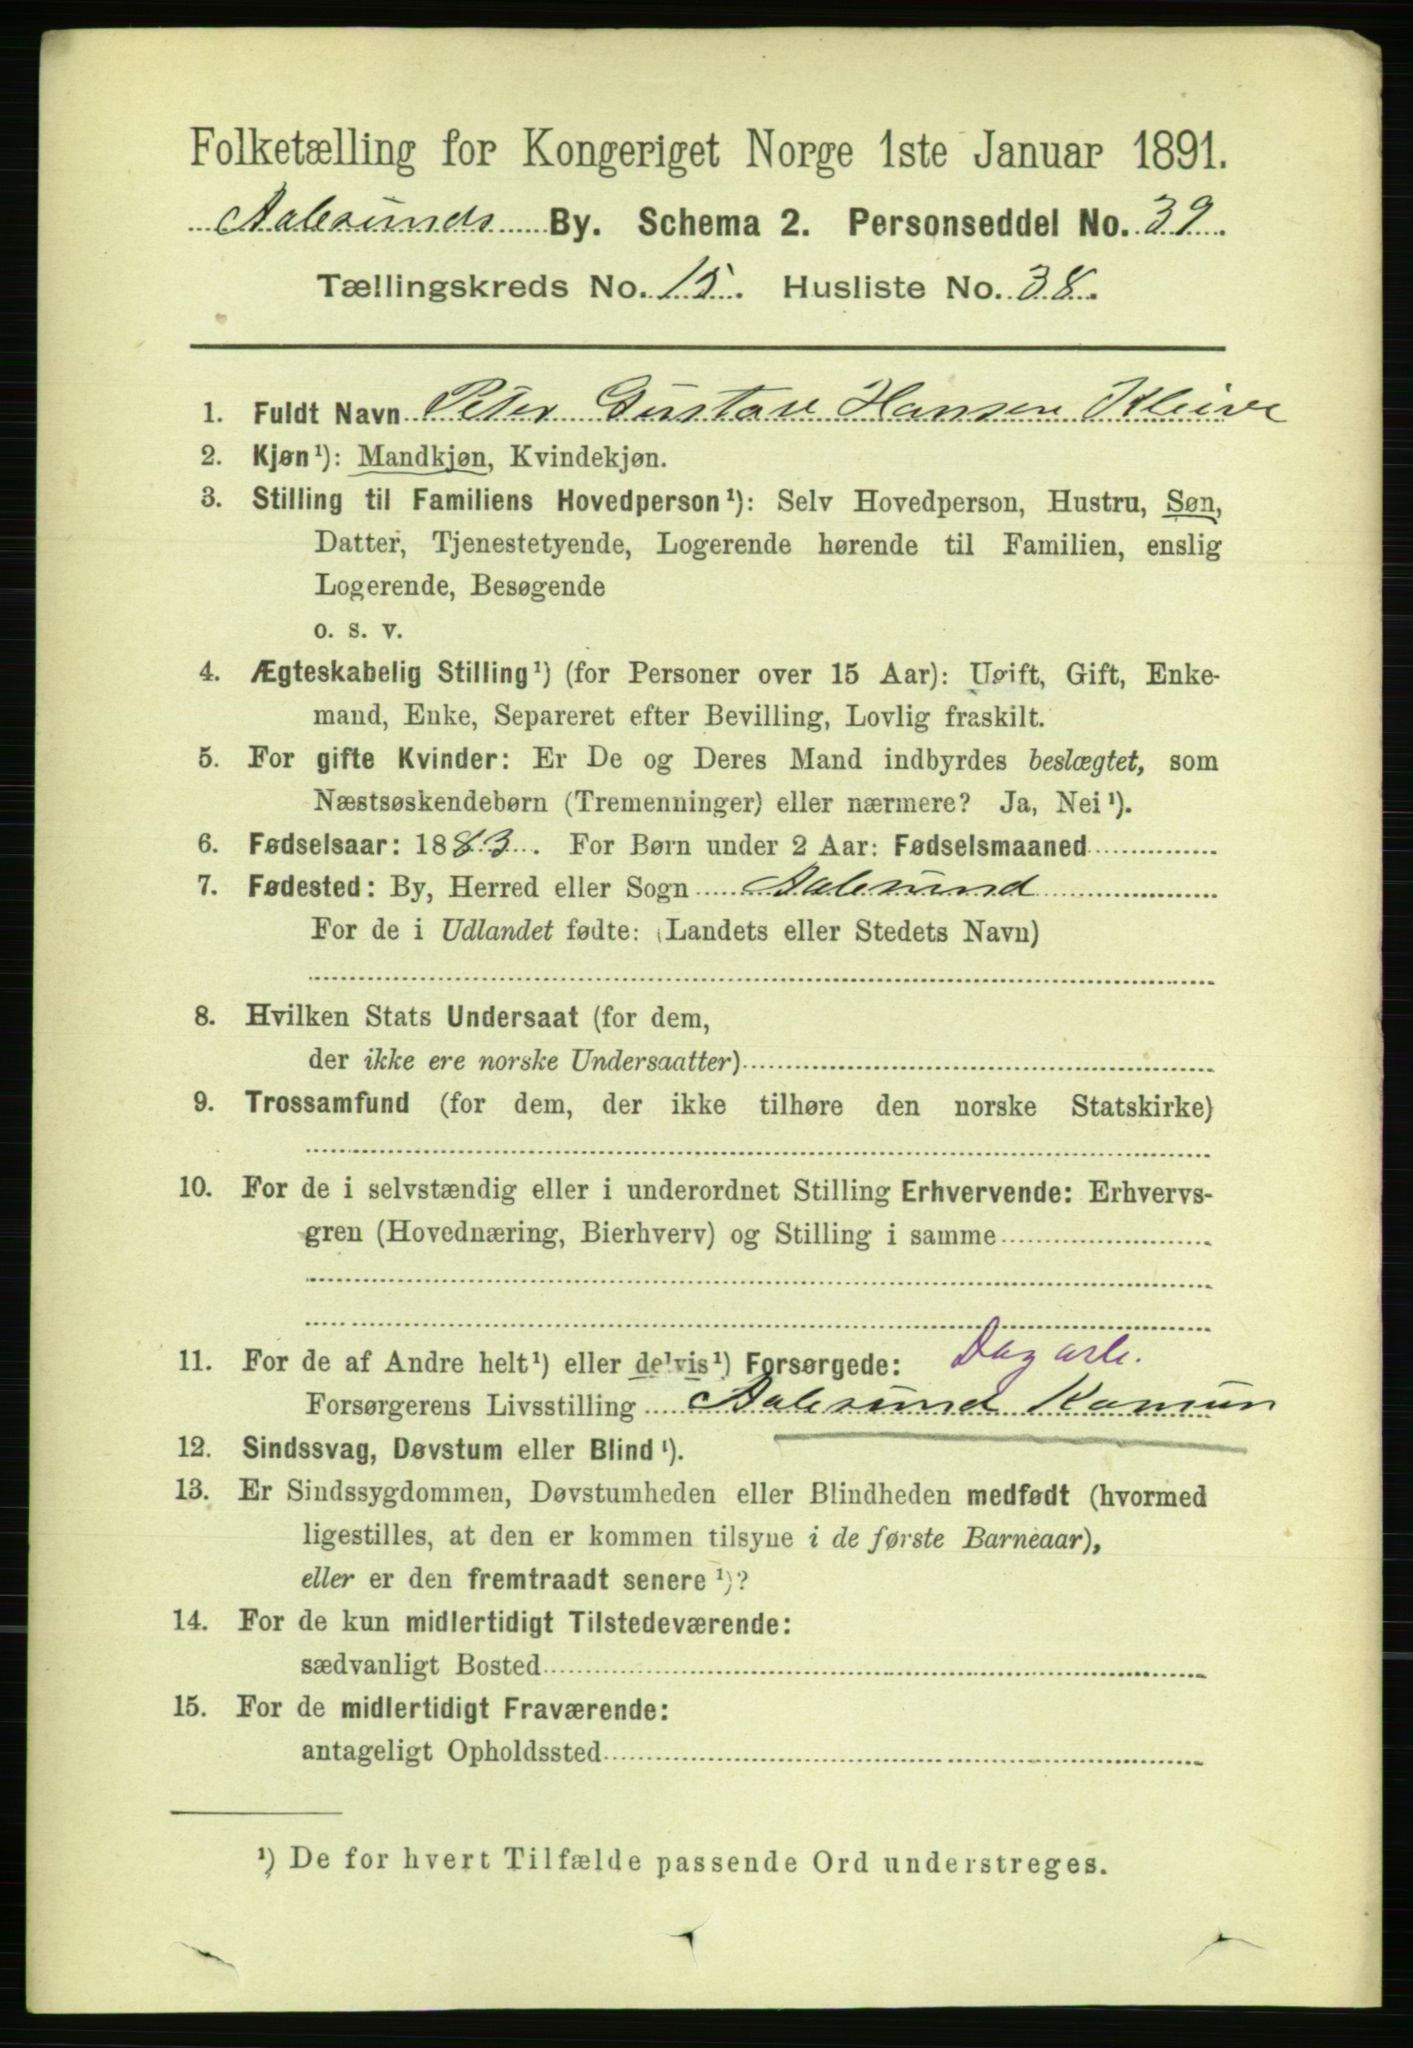 Folketælling for Kongeriget Norge 1ste Januar 1891.
Aalesunds By. Schema 2. Personseddel No. 39.
Tællingskreds No. 15. Husliste No. 38.
1. Fuldt Navn Peter Gustav Hansen Kleive
2. Kjøn¹): Mandkjøn, Kvindekjøn.
3. Stilling til Familiens Hovedperson¹): Selv Hovedperson, Hustru, Søn,
Datter, Tjenestetyende, Logerende hørende til Familien, enslig
Logerende, Besøgende
o. s. v.
4. Ægteskabelig Stilling¹) (for Personer over 15 Aar): Ugift, Gift, Enke-
mand, Enke, Separeret efter Bevilling, Lovlig fraskilt.
5. For gifte Kvinder: Er De og Deres Mand indbyrdes beslægtet, som
Næstsøskendebørn (Tremenninger) eller nærmere? Ja, Nei¹).
6. Fødselsaar: 1883. For Børn under 2 Aar: Fødselsmaaned
7. Fødested: By, Herred eller Sogn Aalesund
For de i Udlandet fødte: (Landets eller Stedets Navn)
8. Hvilken Stats Undersaat (for dem,
der ikke ere norske Undersaatter)
9. Trossamfund (for dem, der ikke tilhøre den norske Statskirke)
10. For de i selvstændig eller i underordnet Stilling Erhvervende: Erhvervs-
gren (Hovednæring, Bierhverv) og Stilling i samme
11. For de af Andre helt¹) eller delvis¹) Forsørgede: Dagarb.
Forsørgerens Livsstilling Aalesund Komun
12. Sindssvag, Døvstum eller Blind¹).
13. Er Sindssygdommen, Døvstumheden eller Blindheden medfødt (hvormed
ligestilles, at den er kommen tilsyne i de første Barneaar),
eller er den fremtraadt senere¹)?
14. For de kun midlertidigt Tilstedeværende:
sædvanligt Bosted
15. For de midlertidigt Fraværende:
antageligt Opholdssted
¹) De for hvert Tilfælde passende Ord understreges.